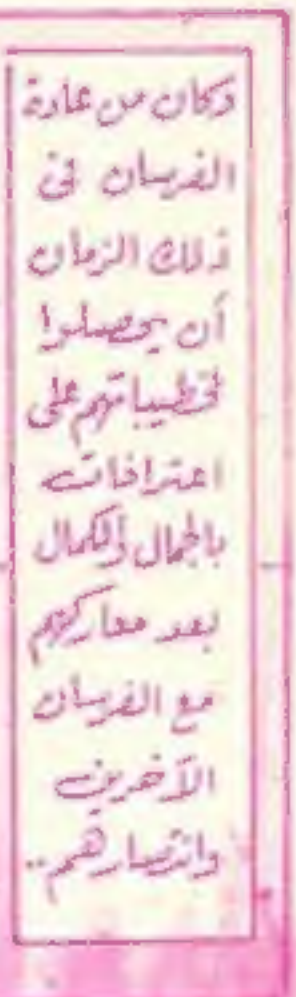 وكان من عادة
الفرسان فى
ذلك الزمان
أن يحصلوا
لخطيباتهم على
اعترافات
بالجمال والكمال
بعد معاركهم
مع الفرسان
الآخرين
وانتصارهم..